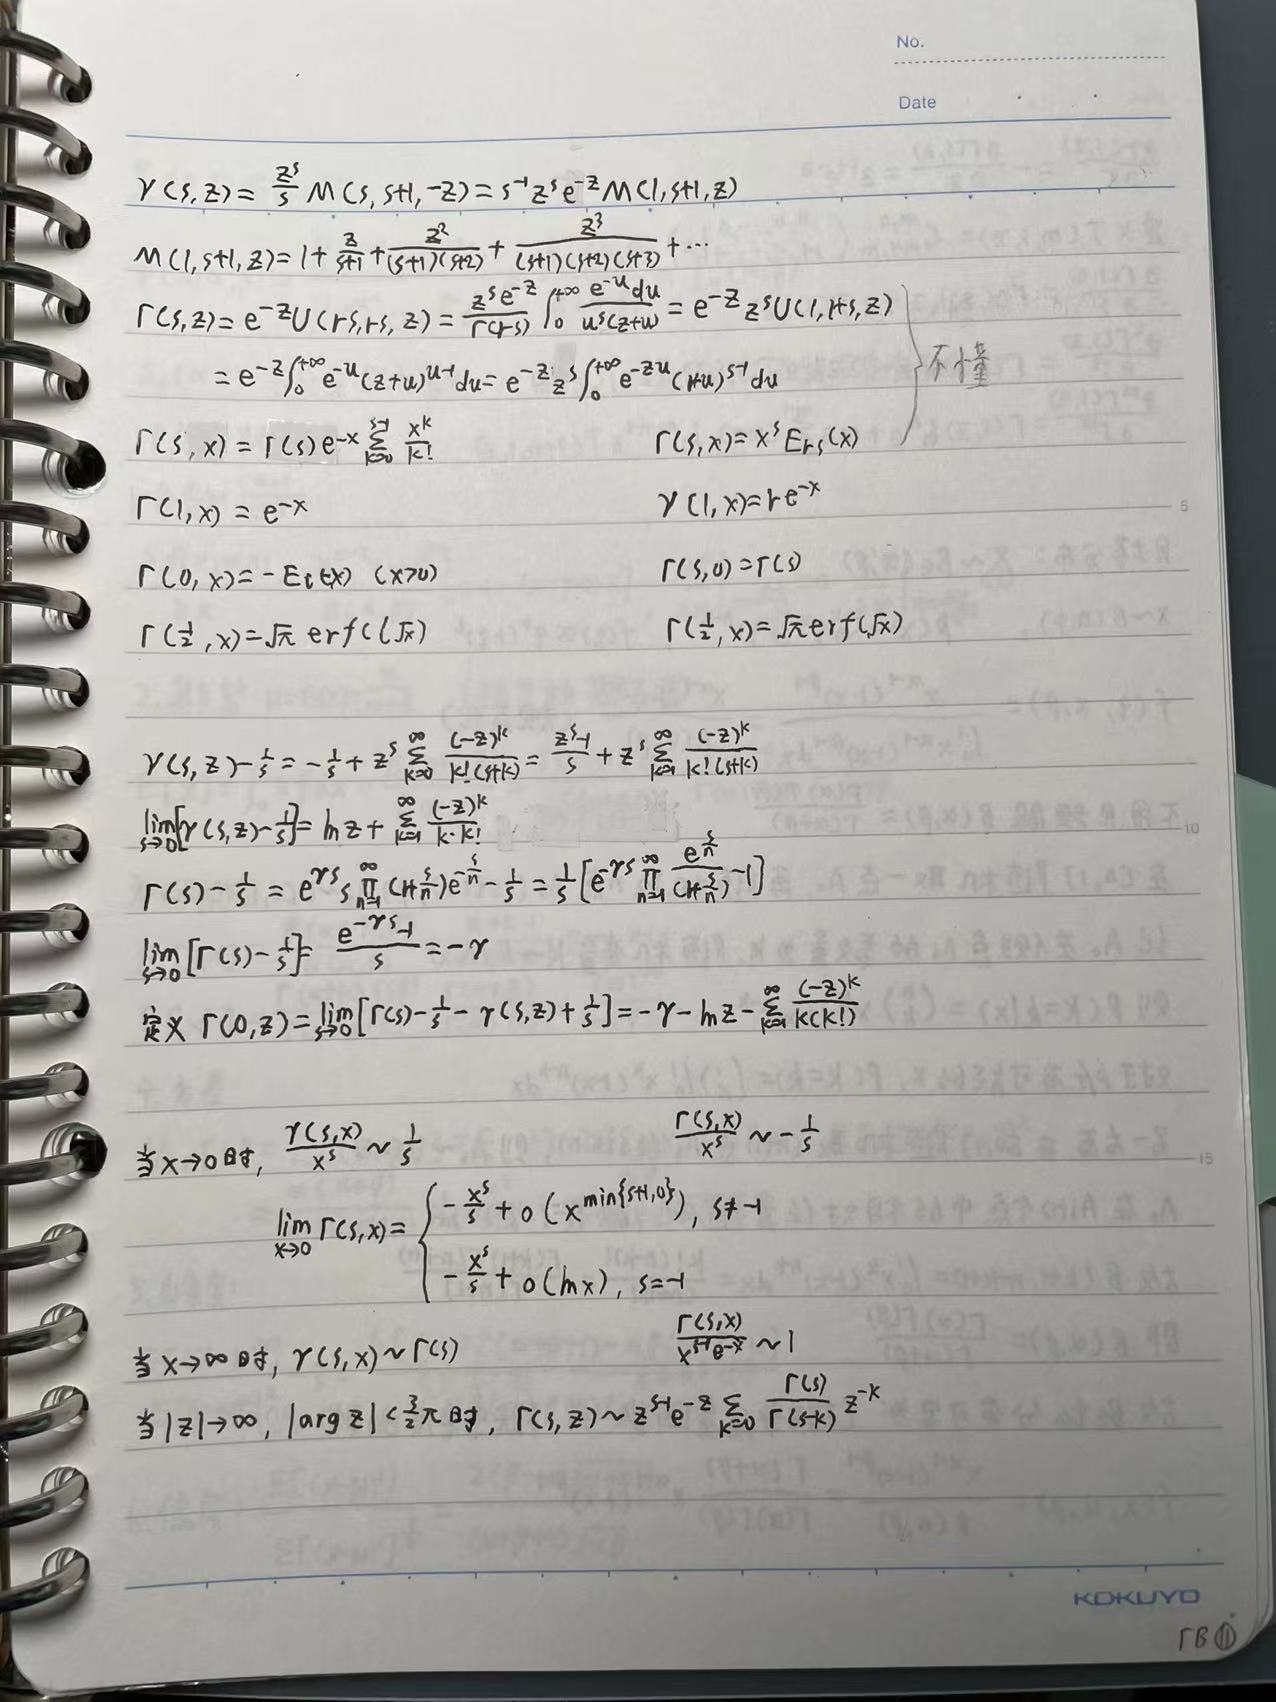 No.
Date
γ(s,z)= z^s/s M(s,s+1,-z)=s⁻¹z^s e^-z M(1,s+1,z)
M(1,s+1,z)=1+ z/(s+1) + z²/((s+1)(s+2)) + z³/((s+1)(s+2)(s+3)) +⋯
Γ(s,z)=e^-z U(1-s,1-s,z)= z^s e^-z/Γ(1-s) ∫₀^+∞ e^-u du/(u^s(z+u)) = e^-z z^s U(1,1+s,z)
= e^-z ∫₀^+∞ e^-u (z+u)^(u-1) du= e^-z z^s ∫₀^+∞ e^-zu (1+u)^(s-1) du
不懂
Γ(s,x)=Γ(s)e^-x Σ_{k=0}^{s-1} x^k/k! Γ(s,x)=x^s E_{1-s}(x)
Γ(1,x)=e^-x γ(1,x)=1-e^-x
Γ(0,x)=-Ei(-x) (x>0) Γ(s,0)=Γ(s)
Γ(1/2,x)=√π erfc(√x) Γ(1/2,x)=√π erf(√x)
γ(s,z)-1/s=-1/s+z^s Σ_{k=0}^∞ (-z)^k/(k!(s+k)) = (z^s-1)/s + z^s Σ_{k=1}^∞ (-z)^k/(k!(s+k))
lim_{s→0}[γ(s,z)-1/s]=ln z+ Σ_{k=1}^∞ (-z)^k/(k·k!)
Γ(s)-1/s = e^γs s Π_{n=1}^∞ (1+s/n)e^(-s/n) - 1/s = 1/s [e^-γs Π_{n=1}^∞ e^(s/n)/(1+s/n) -1]
lim_{s→0}[Γ(s)-1/s]= (e^-γs -1)/s =-γ
定义 Γ(0,z)=lim_{s→0}[Γ(s)-1/s-γ(s,z)+1/s]=-γ-ln z- Σ_{k=1}^∞ (-z)^k/(k(k!))
当x→0时, γ(s,x)/x^s ~ 1/s Γ(s,x)/x^s ~ -1/s
lim_{x→0} Γ(s,x)= { -x^s/s + o(x^min{s+1,0}), s≠-1
-x^s/s + o(ln x), s=-1
当x→∞时, γ(s,x)~Γ(s) Γ(s,x)/(x^(s-1)e^-x) ~1
当|z|→∞, |arg z|<3/2 π时, Γ(s,z)~z^(s-1)e^-z Σ_{k=0} Γ(s)/Γ(s-k) z^-k
5
10
15
KOKUYO
ΓB⑪